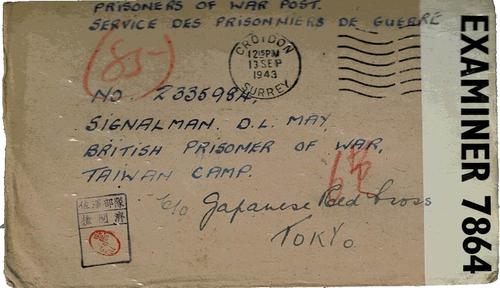 PRISONERS OF WAR POST.
SERVICE DES PRISONNIERS DE GUERRE
(85)
CROIDON
12 15 PM
13 SEP
1943
SURREY
NO 2335984,
SIGNALMAN. D. L. MAY,
BRITISH PRISONER OF WAR,
TAIWAN CAMP.
c/o Japanese Red Cross
TOKYO
檢閲濟
EXAMINER 7864